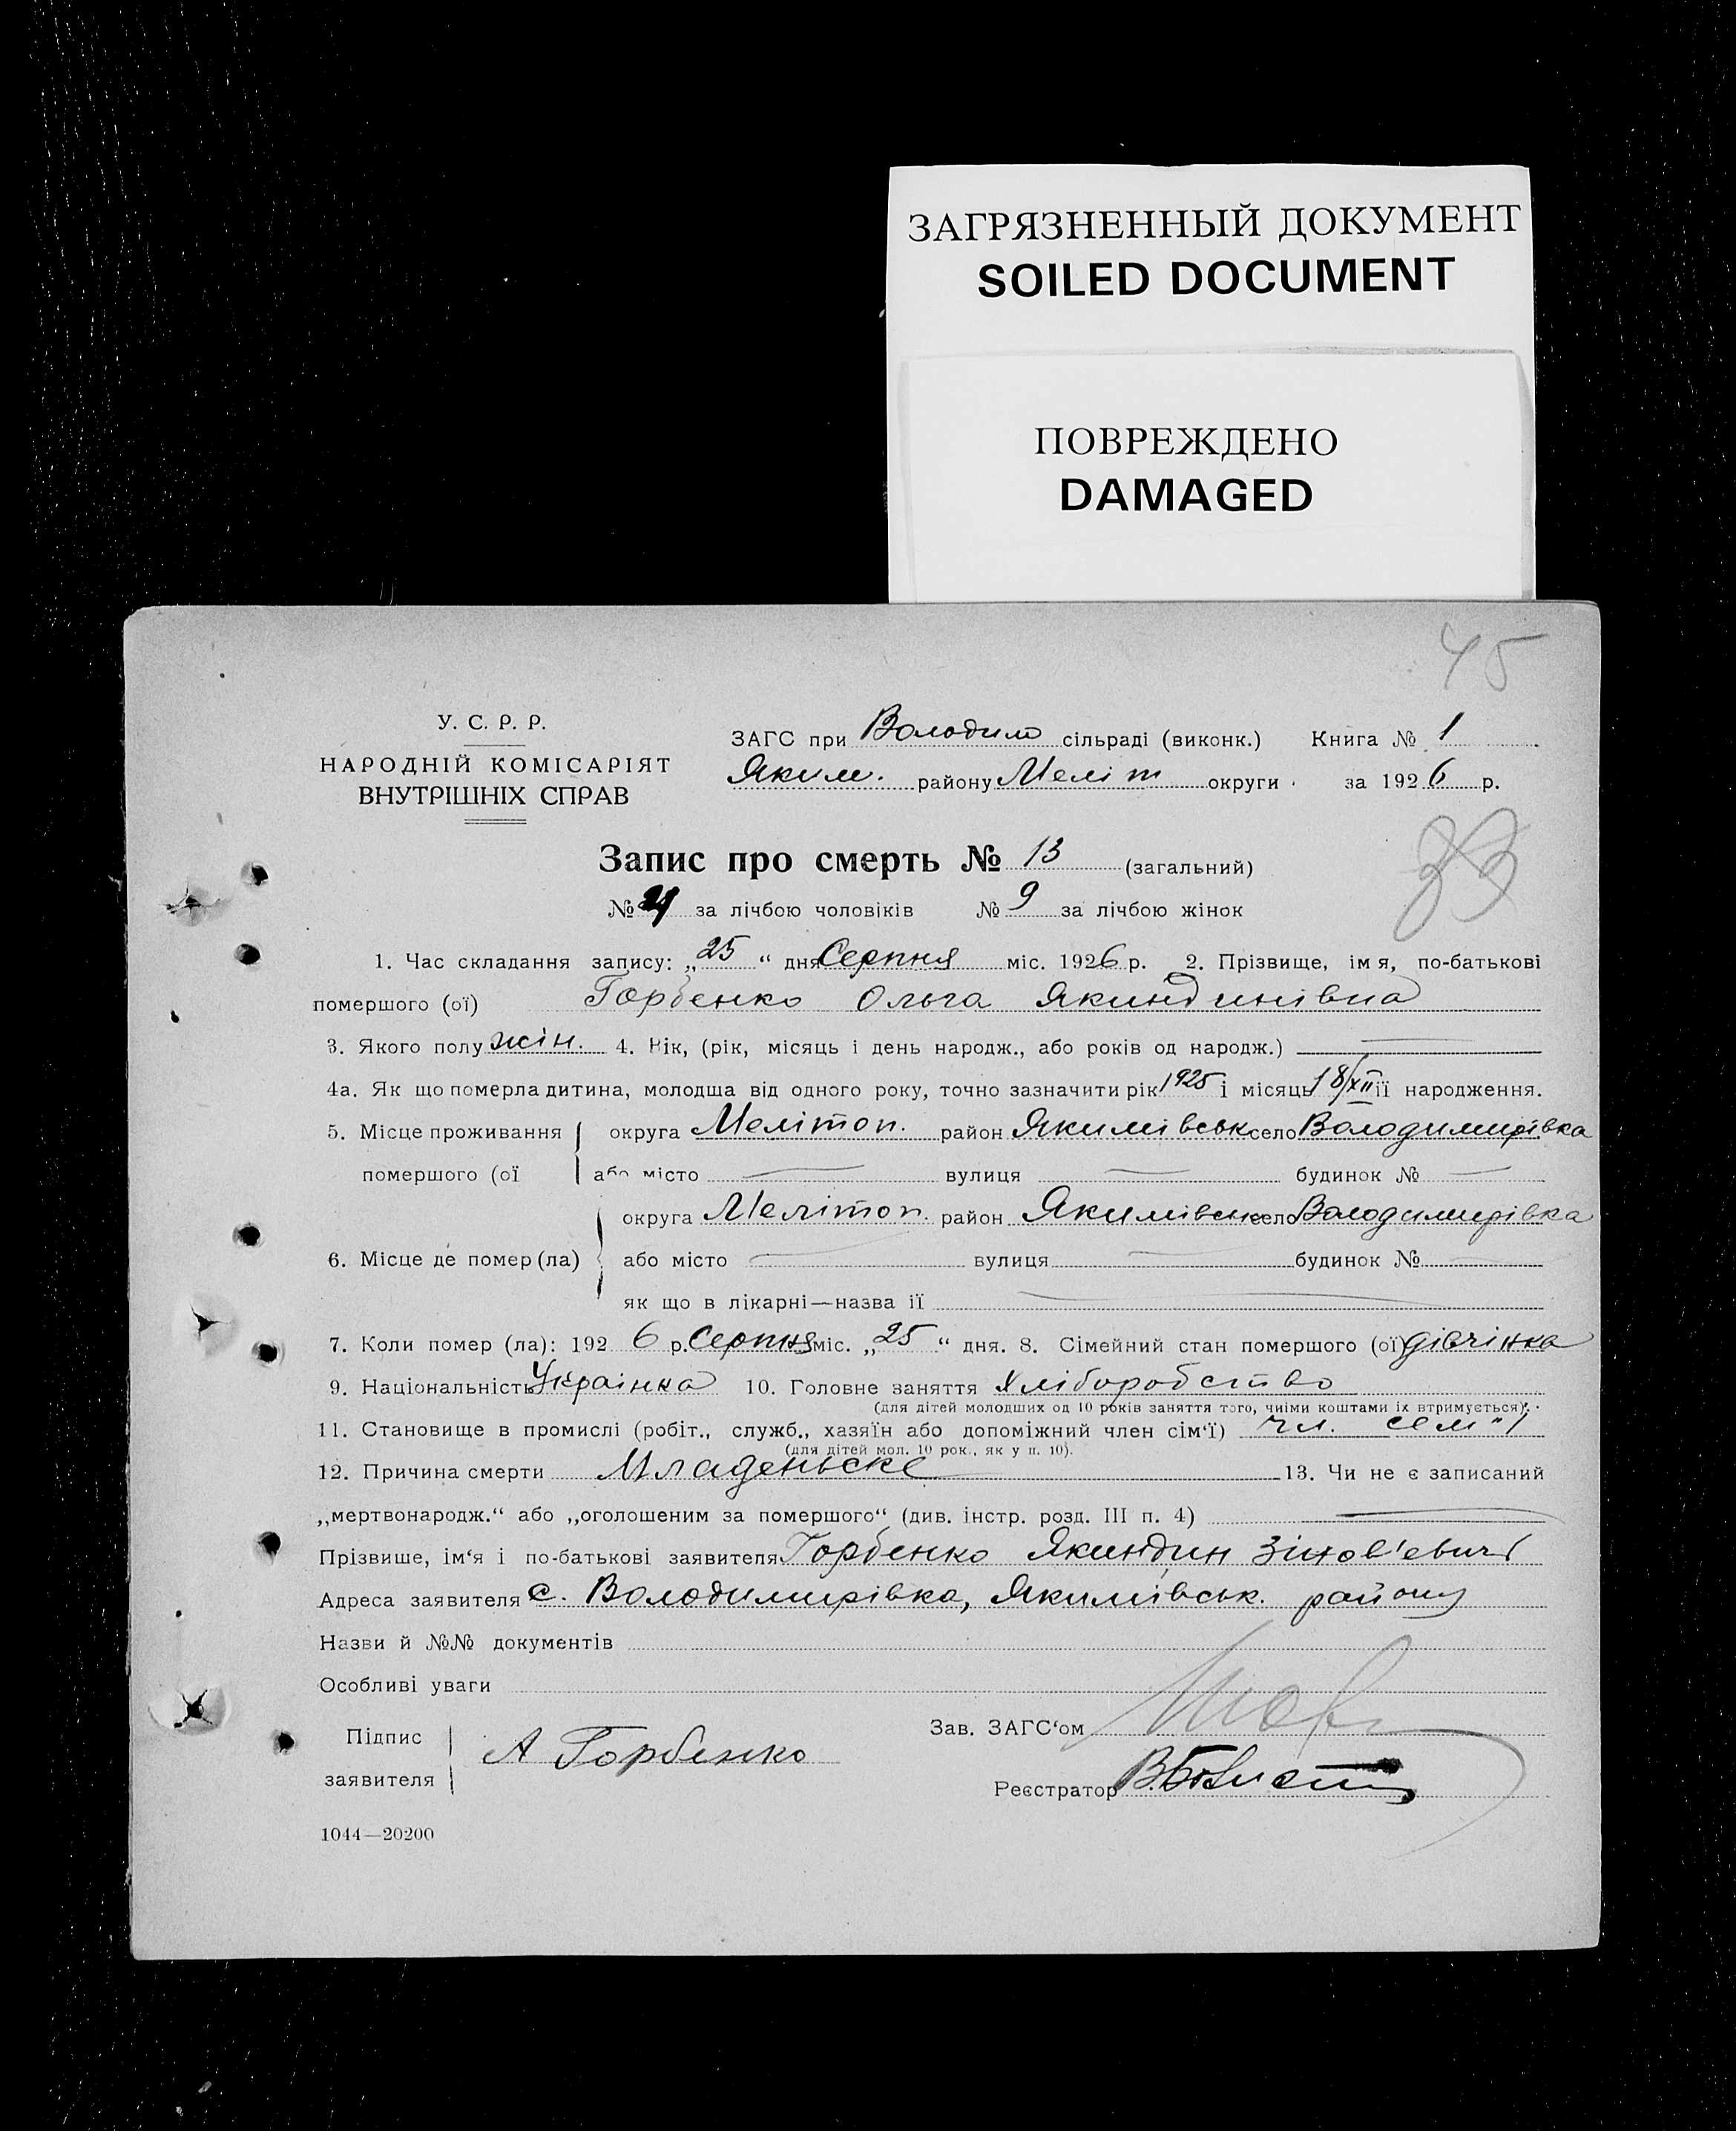 ЗАГРЯЗНЕННЫЙ ДОКУМЕНТ
SOILED DOCUMENT
ПОВРЕЖДЕНО
DAMAGED
45
У. С. Р. Р.
НАРОДНІЙ КОМІСАРІЯТ
ВНУТРІШНІХ СПРАВ
ЗАГС при Володим сільраді (виконк.) Книга № 1
Яким. району Меліт округи за 1926 р.
Запис про смерть № 13 (загальний)
33
№ 4 за лічбою чоловіків № 9 за лічбою жінок
1. Час складання запису: „25“ дня Серпня міс. 1926 р. 2. Прізвище, імя, по-батькові
помершого (ої) Горбенко Ольга Якиндинівна
3. Якого полу жін. 4. Вік, (рік, місяць і день народж., або років од народж.) —
4а. Як що померла дитина, молодша від одного року, точно зазначити рік 1925 і місяць 18/XII її народження.
5. Місце проживання округа Мелітоп. район Якимівськ село Володимирівка
помершого (ої або місто — вулиця — будинок № —
округа Мелітоп. район Якимівськ село Володимирівка
6. Місце де помер(ла) або місто — вулиця — будинок № —
як що в лікарні—назва її —
7. Коли помер (ла): 1926 р. Серпня міс. „25“ дня. 8. Сімейний стан помершого (ої) дівчінка
9. Національність Українка 10. Головне заняття Хліборобство
(для дітей молодших од 10 років заняття того, чиїми коштами їх втримується).
11. Становище в промислі (робіт., служб., хазяїн або допоміжний член сім‘ї) чл. сем"ї
(для дітей мол. 10 рок., як у п. 10).
12. Причина смерти Младеньске 13. Чи не є записаний
„мертвонародж.“ або „оголошеним за помершого“ (див. інстр. розд. III п. 4) —
Прізвише, ім‘я і по-батькові заявителя Горбенко Якиндин Зінов'евич
Адреса заявителя с. Володимирівка, Якимівськ. району
Назви й №№ документів
Особливі уваги
Підпис
заявителя
А Горбенко
Зав. ЗАГС‘ом
Реєстратор
1044—20200